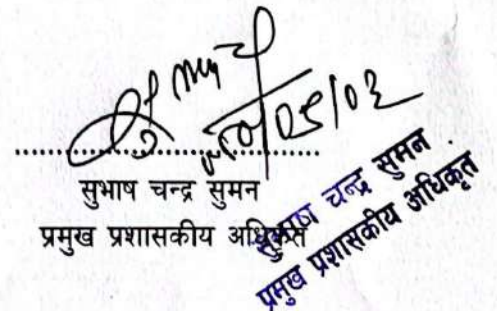 सुभाष चन्द्र सुमन
प्रमुख प्रशासकीय अधिकृत
सुभाष चन्द्र सुमन
प्रमुख प्रशासकीय अधिकृत